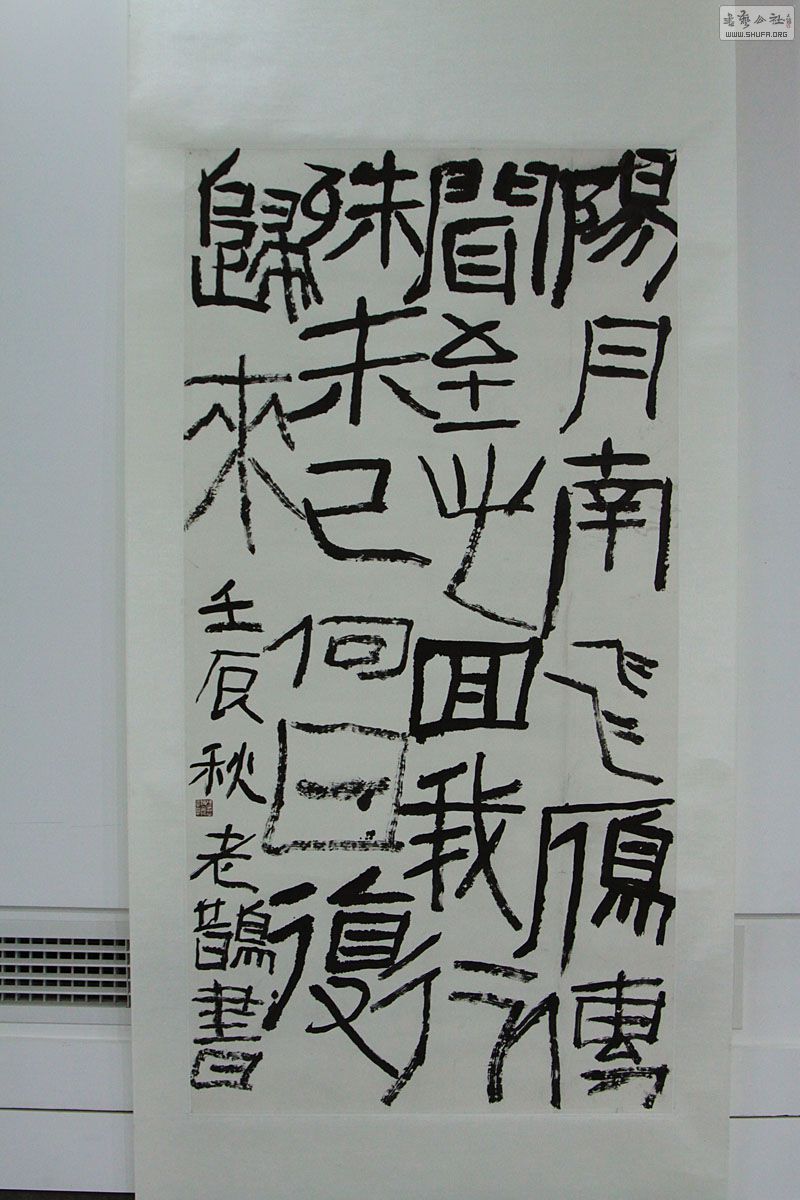 陽月南飛鴈傳
聞至此回我行
殊未已何日復
歸來
壬辰秋老鵲書
書藝公社
WWW.SHUFA.ORG